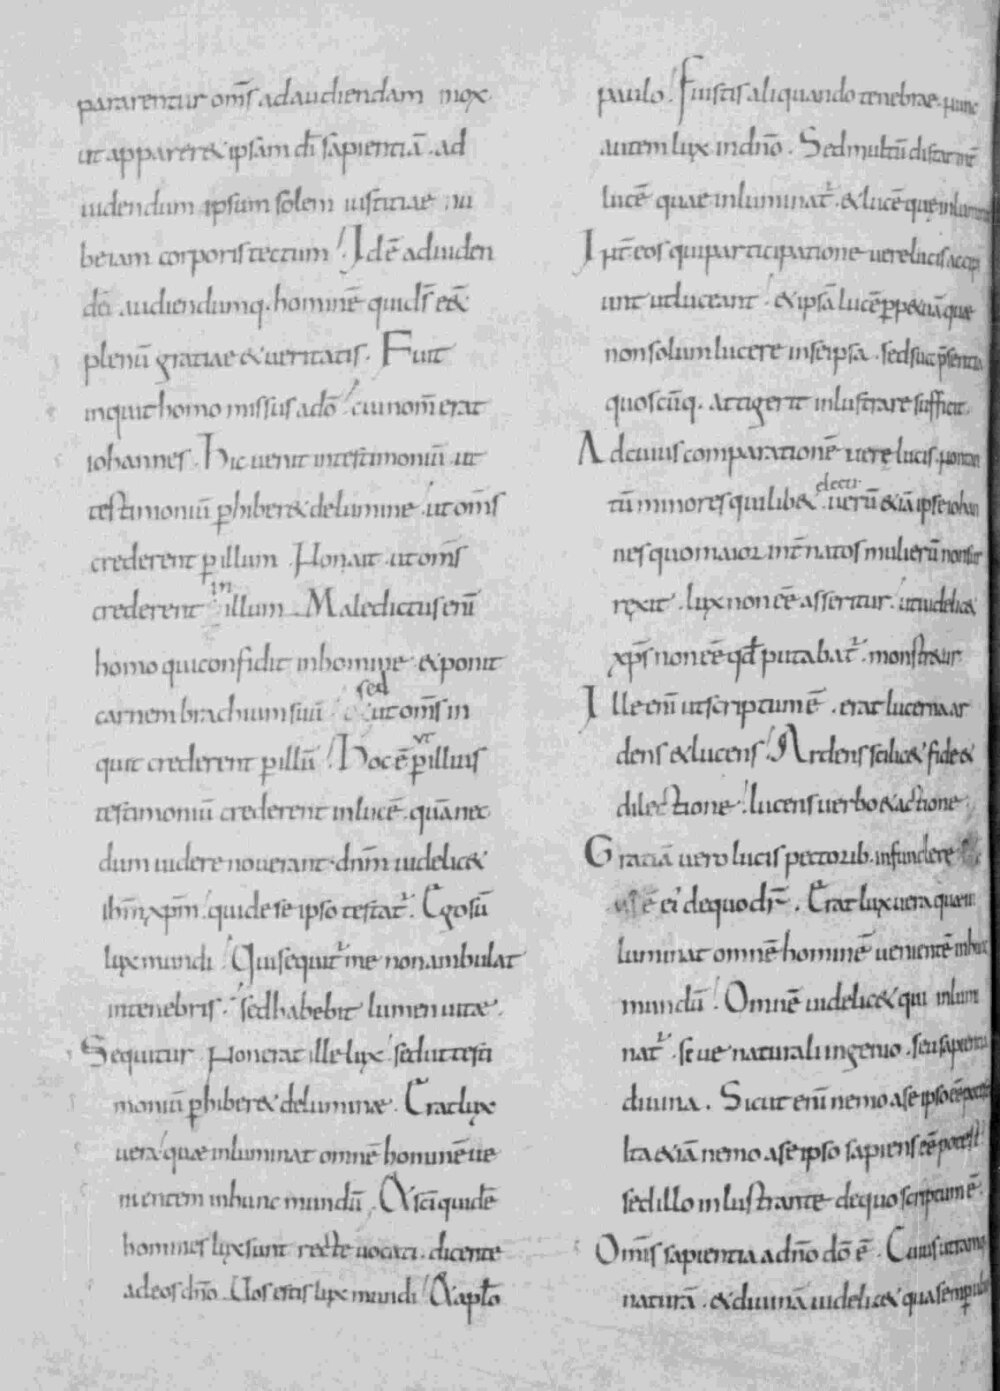 pararentur om̄s ad audiendam mox
ut apparer& ipsam dī sapientiā. ad
uidendum ipsum solem iustitiae nu
be iam corporis tectum. Idē ad uiden
dū audiendumq. hominē qui dr̄ e&̄
plenū gratiae & ueritatis. Fuit
inquit homo missus a dō cui nom̄ erat
iohannes. Hic uenit in testimoniū ut
testimoniū phiber& de lumine. ut om̄s
crederent p illum. Non ait. ut om̄s
crederent in illum. Maledictus enī
homo qui confidit in homine & ponit
carnem brachium suū. sed ut om̄s in
quit crederent p illū. Hoc ē ut p illius
testimoniū crederent in lucē. quā nec
dum uidere nouerant. dn̄m uidelic&
ihm̄ xpm̄. qui de se ipso testat'. Ego sū
lux mundi. Qui sequit' me non ambulat
in tenebris. sed habebit lumen uitae.
Sequitur. Non erat ille lux. sed ut testi
moniū phiber& de luminæ. Erat lux
uera quæ inluminat omnē hominē ue
nientem in hunc mundū. & sc̄i quidē
homines lux sunt recte uocati. dicente
ad eos dn̄o. Uos estis lux mundi. & aplo
paulo. Fuistis aliquando tenebrae. nunc
autem lux in dn̄o. Sed multū distat int̄
lucē quae inluminat'. & lucē que inluminat
Int̄ eos qui participatione uere lucis accipi
unt ut luceant. & ipsā lucē ppetuā que
non solum lucere in se ipsa. sed sua p̄sentia
quoscūq. attigerit inlustrare sufficit.
Ad cuius comparationē uere lucis. non tan
tū minores quilib& electi. uerū & iā ipse iohan
nes quo maior int̄ natos mulierū non sur
rexit. lux non eē asseritur. ut uidelic&
xps̄ non eē qđ putabat'. monstr&ur
Ille enī ut scriptum ē. erat lucerna ar
dens & lucens. Ardens scilic& fide &
dilectione. lucens uerbo & actione
Gratiā uero lucis pectorib. infundere
ē ei' de quo dr̄. Erat lux uera quae in
luminat omnē hominē uenientē in hunc
mundū. Omnē uidelic& qui inlumi
nat'. siue naturali ingenio. seu sapientia
diuina. Sicut enī nemo a se ipso eē potest
Ita & iā nemo a se ipso sapiens eē potest
sed illo inlustrante de quo scriptum ē.
Omīs sapientia a dn̄o dō ē. Cuius utramq
naturā. & diuinā uidelic& qua semp ubiq